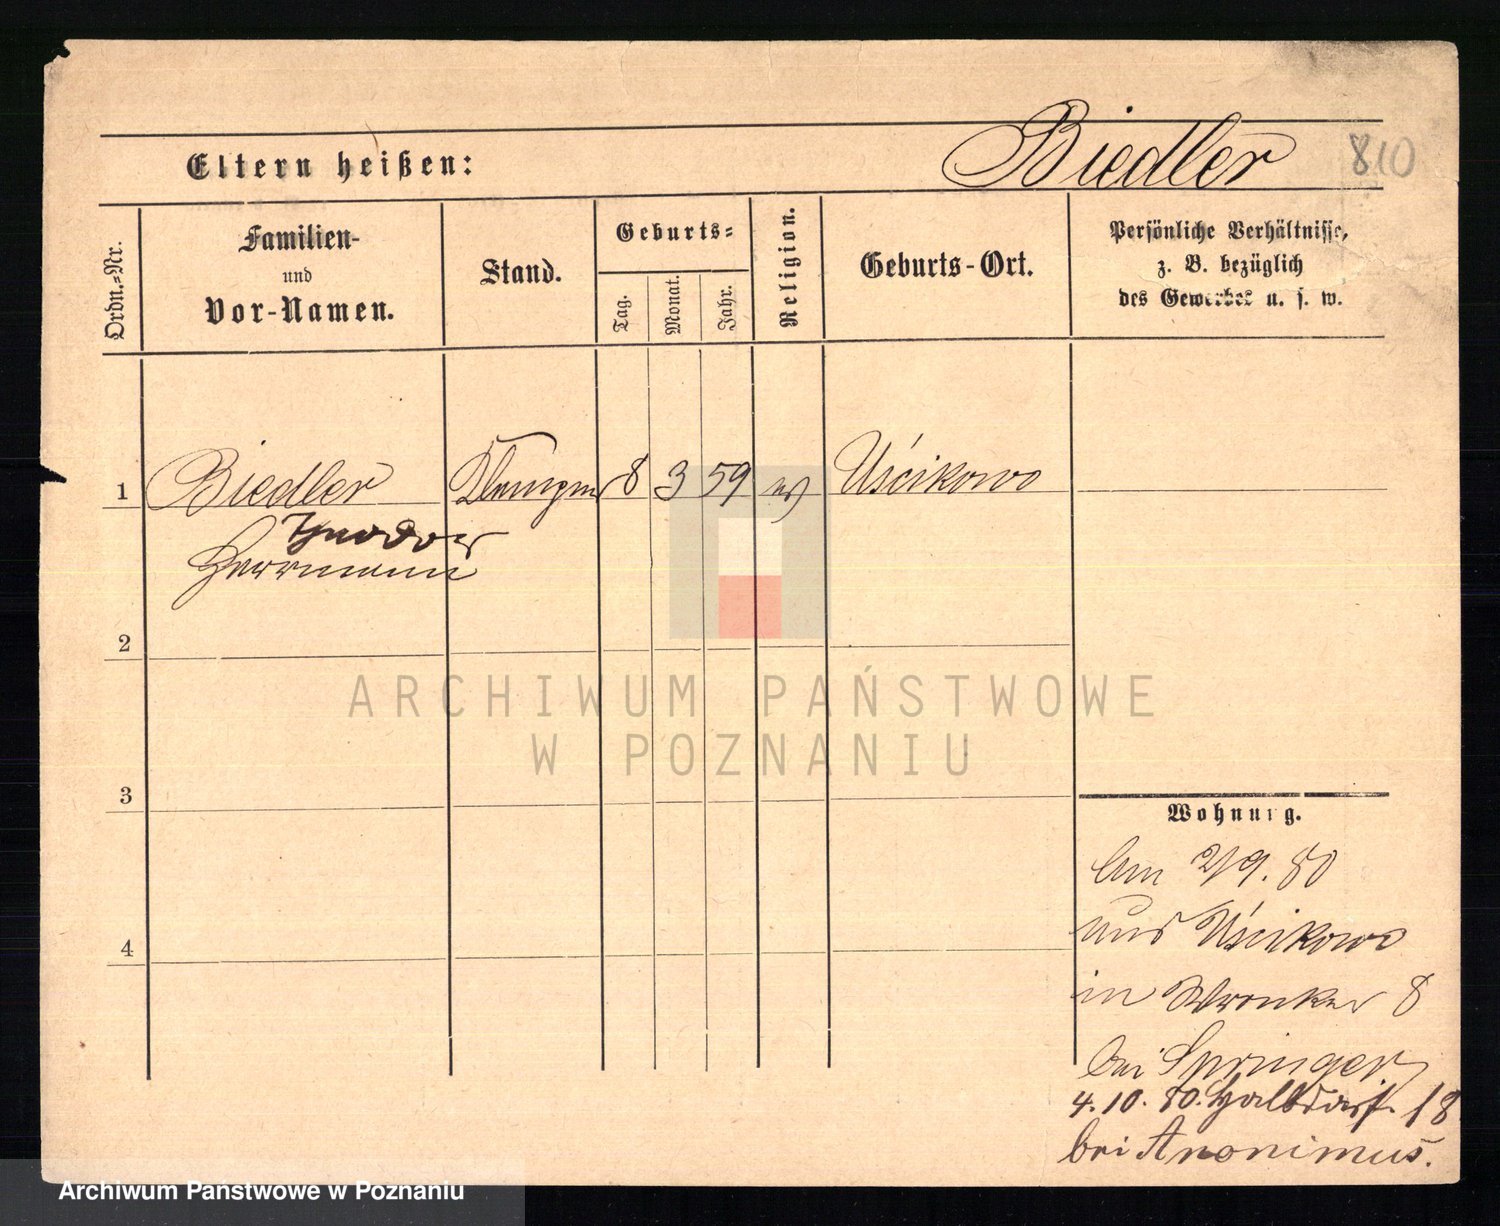 Biedler
810
Eltern heißen:
Ordn.-Nr.
Familien-
und
Vor-Namen.
Stand.
Geburts-
Tag.
Monat.
Jahr.
Religion.
Geburts-Ort.
Persönliche Verhältnisse,
z. B. bezüglich
des Gewerbes u. s. w.
1
Biedler
8 3 59
Uścikowo
Theodor
Herrmann
2
3
4
ARCHIWUM PAŃSTWOWE
W POZNANIU
Wohnung.
Am 2/9. 80
aus Uścikowo
in Wronker 8
bei Springer
4. 10. 80. Halbdorfs. 18
bei Anonimus.
Archiwum Państwowe w Poznaniu